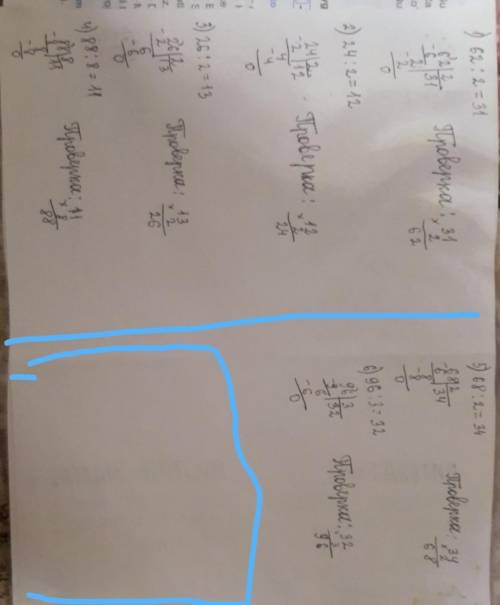 1) 62:2=31
-62|2
6 |31
-2
2
0
Проверка: 31
× 2
62
2) 24:2=12
-24|2
2 |12
-4
4
0
Проверка: 12
× 2
24
3) 26:2=13
-26|2
2 |13
-6
6
0
Проверка: 13
× 2
26
4) 88:8=11
-88|8
8 |11
-8
8
0
Проверка: 11
× 8
88
5) 68:2=34
-68|2
6 |34
-8
8
0
Проверка: 34
× 2
68
6) 96:3=32
-96|3
9 |32
-6
6
0
Проверка: 32
× 3
96